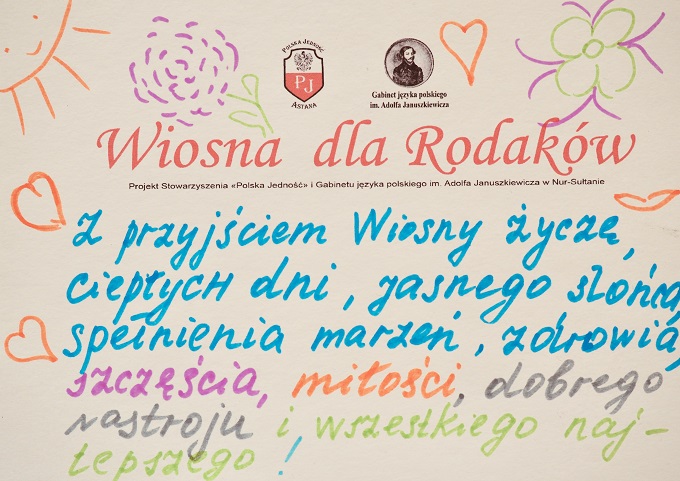 POLSKA JEDNOŚĆ
P J
ASTANA
Gabinet języka polskiego
im. Adolfa Januszkiewicza
Wiosna dla Rodaków
Projekt Stowarzyszenia «Polska Jedność» i Gabinetu języka polskiego im. Adolfa Januszkiewicza w Nur-Sułtanie
Z przyjściem Wiosny życzę,
ciepłych dni, jasnego słońca,
spełnienia marzeń, zdrowia,
szczęścia, miłości, dobrego
nastroju i wszestkiego naj-
lepszego!